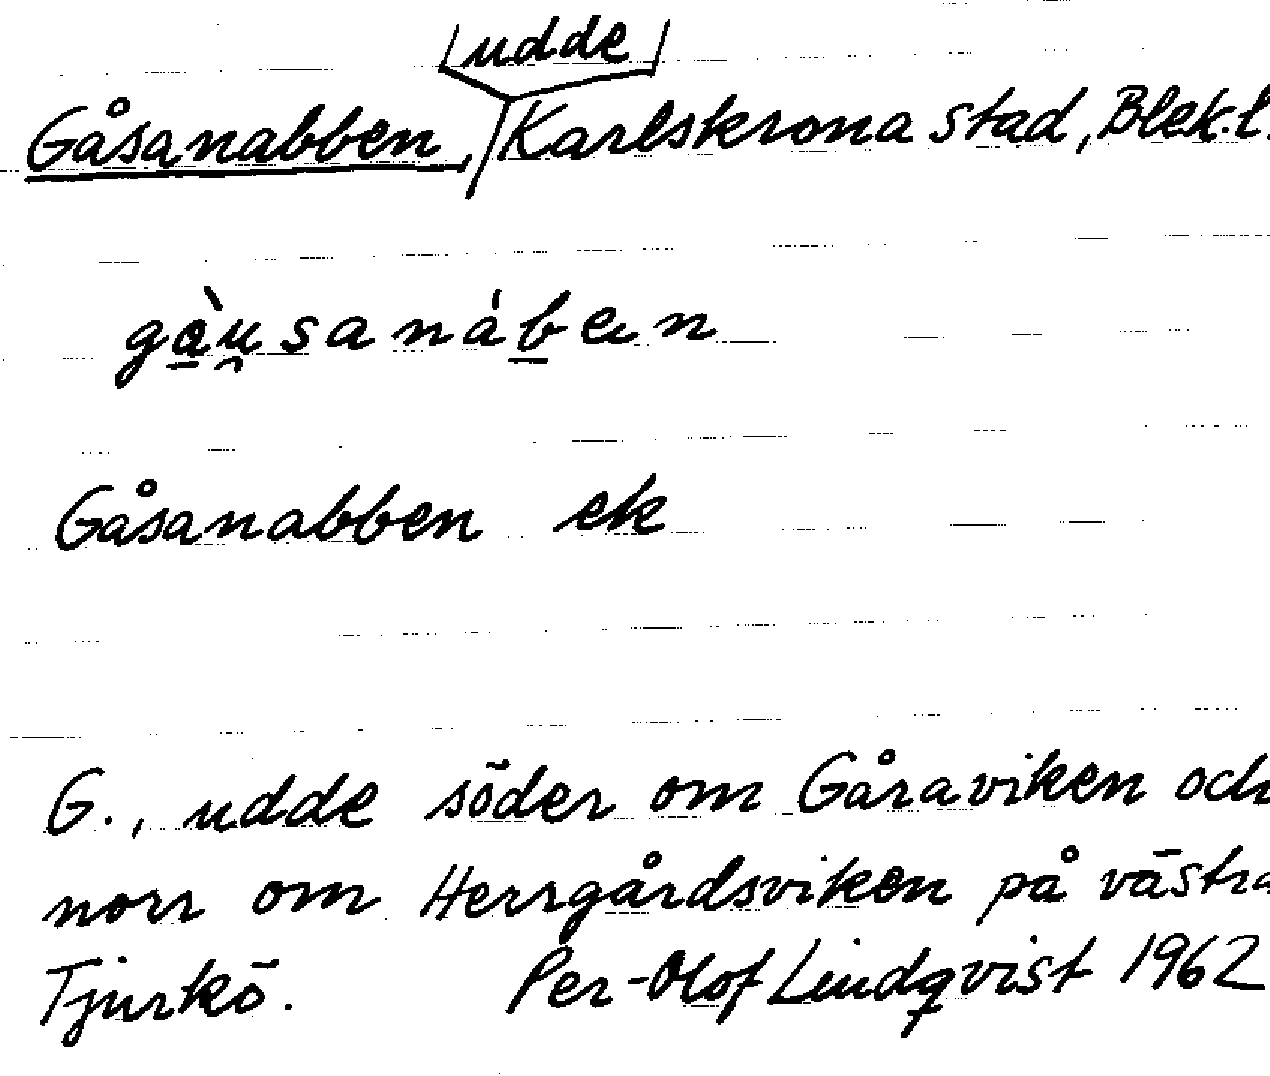 udde
Gåsanabben, Karlskrona stad, Blek.l.
gàu̯sanáben
Gåsanabben ek
G., udde söder om Gåraviken och
norr om Herrgårdsviken på västra
Tjurkö. Per-Olof Lindqvist 1962